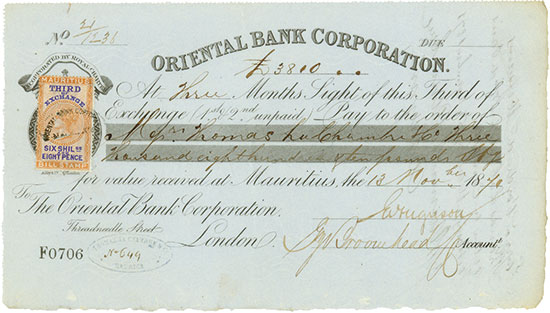 No 21/31
ORIENTAL BANK CORPORATION.
DUE
INCORPORATED BY ROYAL CHARTER
£3810
MAURITIUS
THIRD
OF
EXCHANGE
SIX SHILGS
EIGHT PENCE
BILL STAMP
At Three Months Sight of this Third of
Exchange (1st & 2nd unpaid) Pay to the order of
Messrs Thomas Lachambre & Co Three
thousand eight hundred & ten pounds Stg
for value received at Mauritius, the 13 Novber 1870
To
The Oriental Bank Corporation.
Threadneedle Street
London.
Accountt.
F0706
No 649